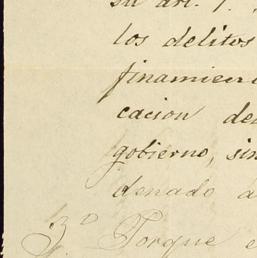 su art. 1.
los delitos
finamien
cacion de
gobierno, sin
denado a
3º Porque e